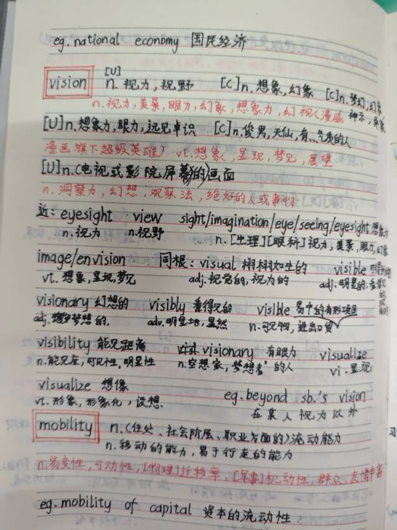 eg. national economy 国民经济
vision [U] n. 视力,视野 [C] n. 想象,幻象 [C] n. 梦幻,幻
n. 视力,美景,眼力,幻象,想象力,幻视(漫威
[U] n. 想象力,眼力,远见卓识 [C] n. 俊男,天仙,有气质的人
漫画旗下超级英雄) vt. 想象,显现,梦见,展望
[U] n. (电视或影院屏幕的)画面
n. 洞察力,幻想,观察法,绝好的人或事物
近: eyesight view sight/imagination/eye/seeing/eyesight
n. 视力 n. 视野 n. [生理][眼科]视力,美景,眼力,幻
image/envision 同根: visual 栩栩如生的 visible
vt. 想象,显现,梦见 adj. 视觉的,视力的 adj. 明显的,
visionary 幻想的 visibly 看得见的 visible
adj. 梦想的, adv. 明显地,显然 n. 可见物,进出口贸
visibility 能见距离 visionary 有眼力 visualize
n. 能见度,可见性,明显性 n. 空想家,梦想者 的人 vi. 显现
visualize 想像 eg. beyond sb.'s vision
vt. 形象,形象化,设想. 在某人视力以外
mobility n. (住处、社会阶层、职业方面的)流动能力
n. 移动的能力,易于行走的能力
n. 易变性,可动性,[物理]迁移率,[军事]机动性,群众,
eg. mobility of capital 资本的流动性